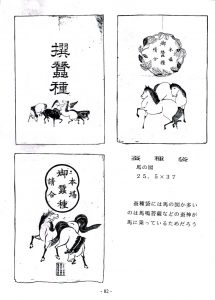 撰
蚕
種
本場
御蚕種
請合
本場
御蚕種
請合
蚕種袋
馬の図
25.5×37
蚕種袋には馬の図が多い
のは馬鳴菩薩などの蚕神が
馬に乗っているためだろう
- 82 -